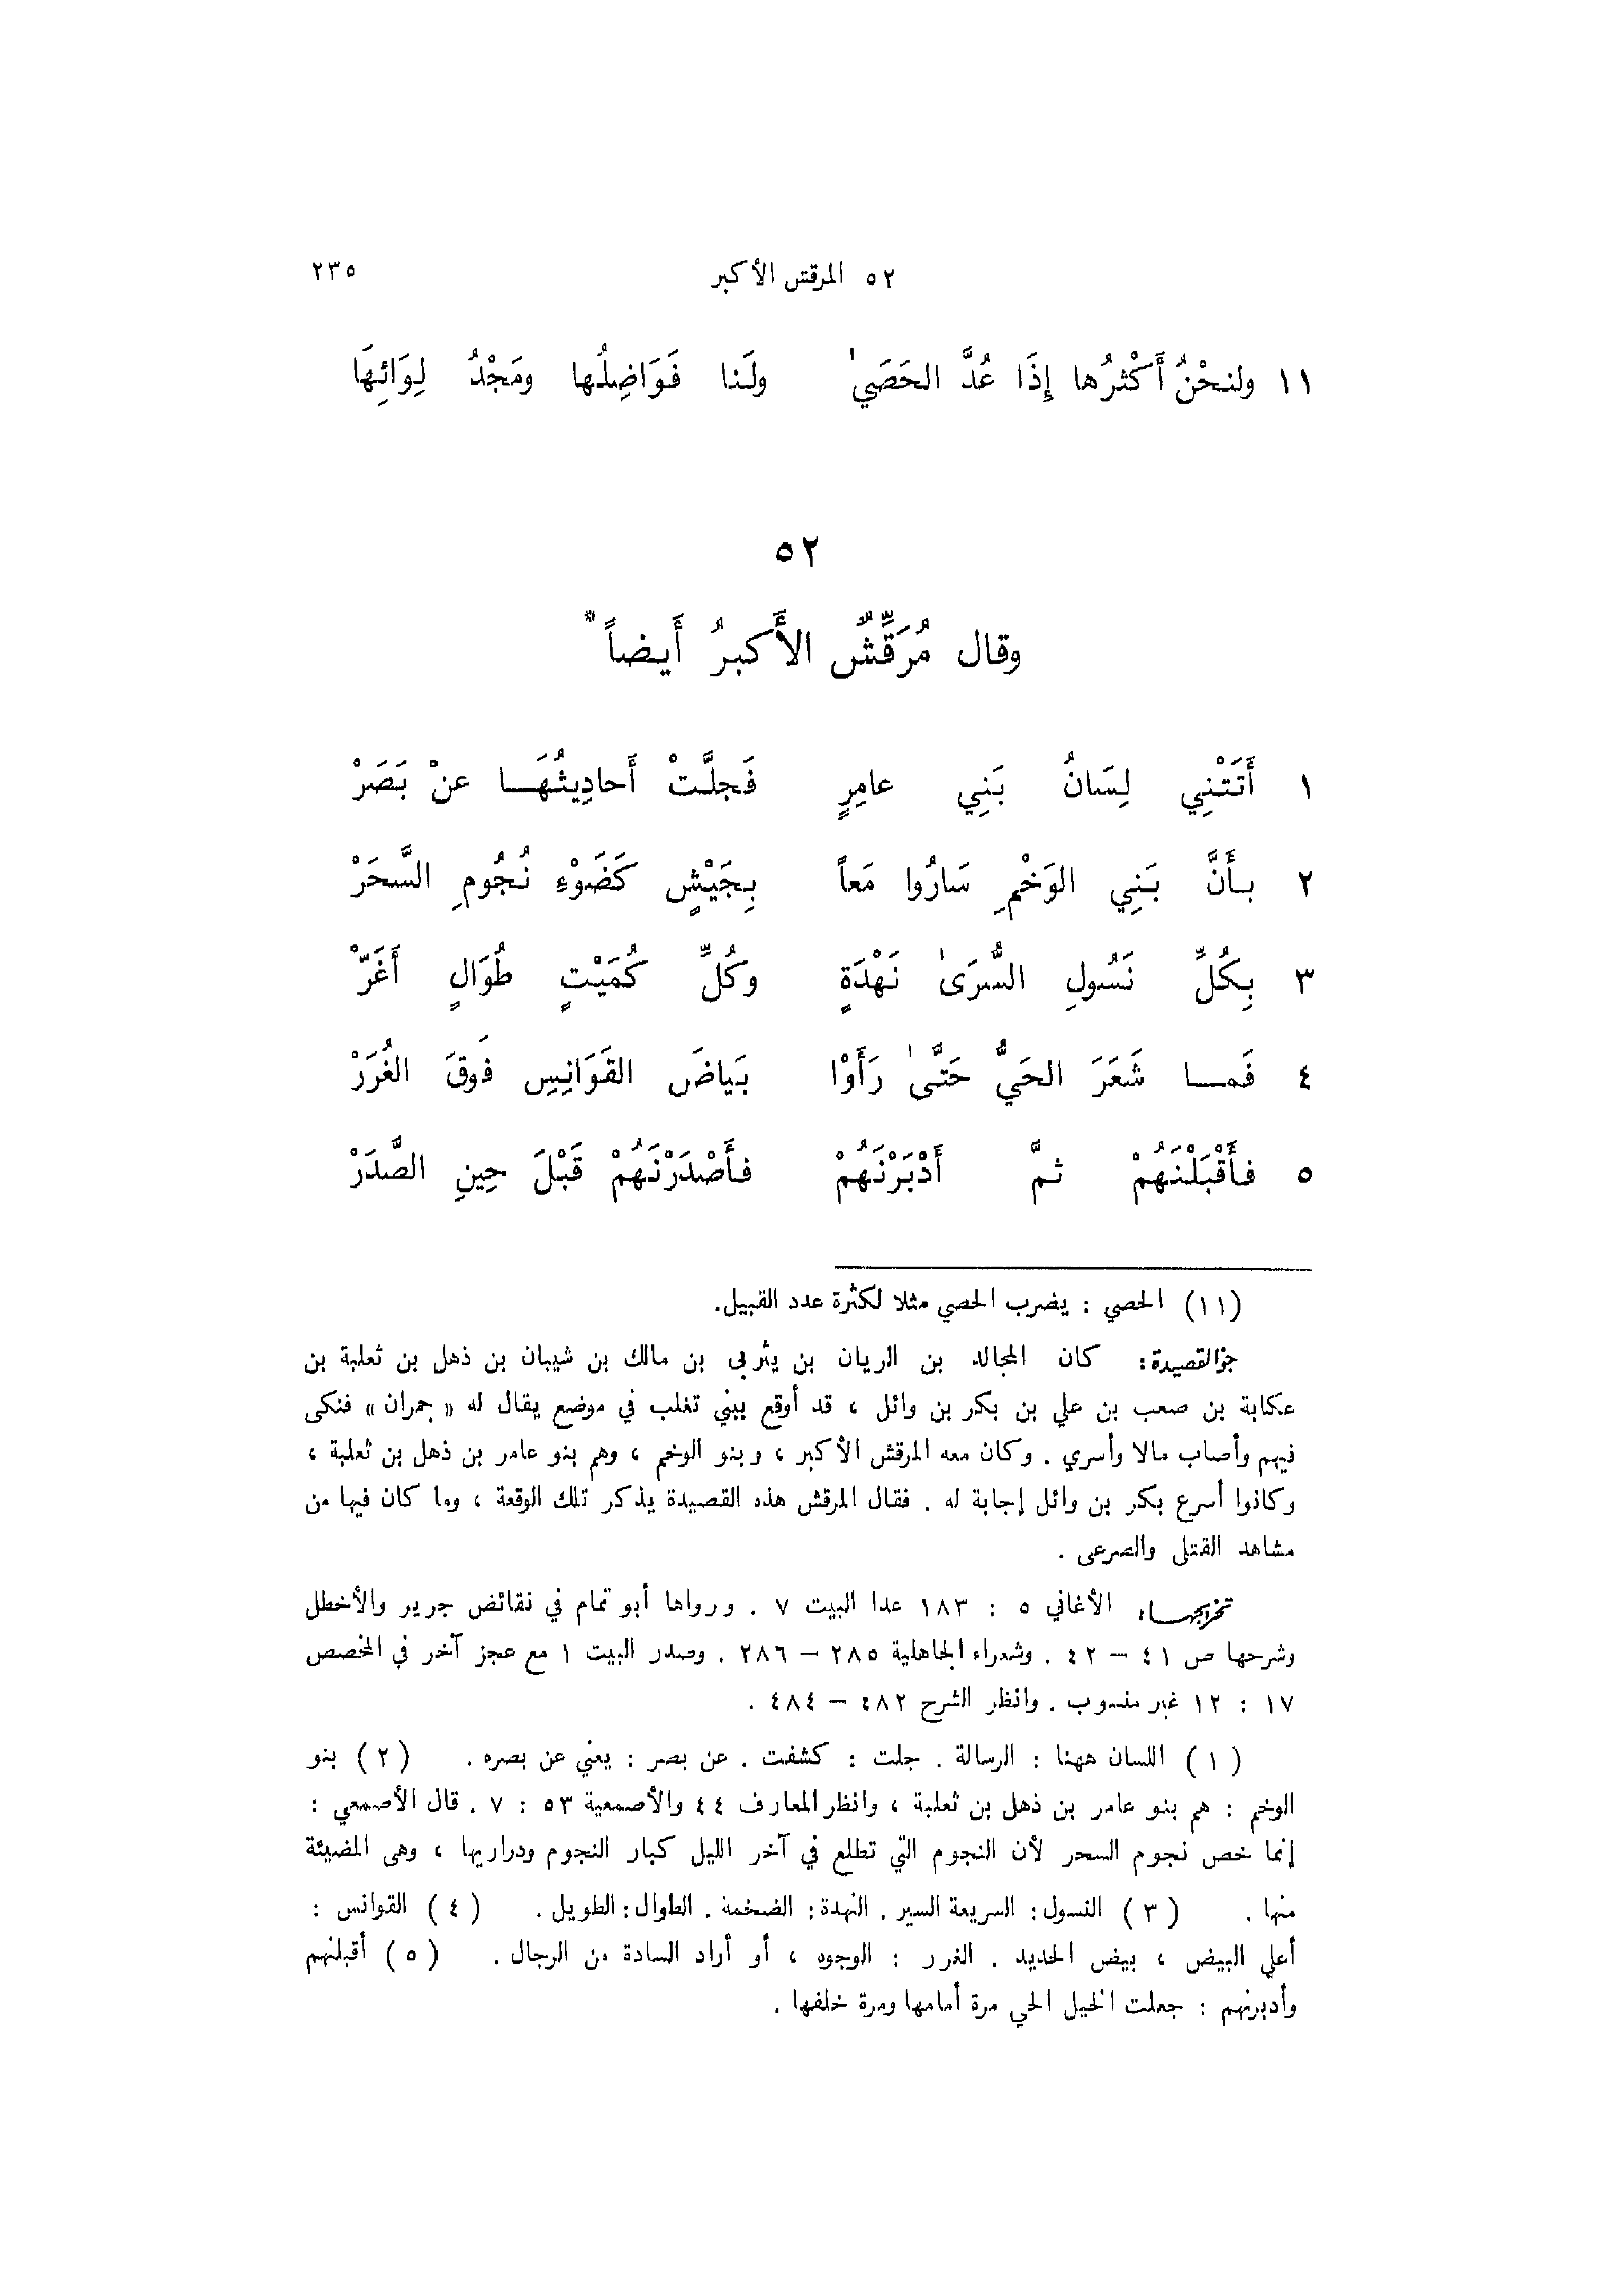 ٥٢ المرقش الأكبر ٢٣٥
١١ ولنحْنُ أَكْثرُها إِذَا عُدَّ الحَصَيٰ ولَنا فَوَاضِلُها ومَجْدُ لِوَائِهَا
٥٢
وقال مُرَقِّشٌ الأَكبرُ أَيضاً*
١ أَتَتْنِي لِسَانُ بَنِي عامِرٍ فَجلَّتْ أَحادِيثُهَا عنْ بَصَرْ
٢ بأَنَّ بَنِي الوَخْمِ سَارُوا مَعاً بِجَيْشٍ كَضَوْءِ نُجُومِ السَّحَرْ
٣ بِكُلِّ نَسُولِ السُّرَىٰ نَهْدَةٍ وكُلِّ كُمَيْتٍ طُوَالٍ أَغَرّْ
٤ فَما شَعَرَ الحَيُّ حَتَّىٰ رَأَوْا بَياضَ القَوَانِيسِ فَوقَ الغُرَرْ
٥ فأَقْبَلْنَهُمْ ثمَّ أَدْبَرْنَهُمْ فأَصْدَرْنَهُمْ قَبْلَ حِينِ الصَّدَرْ
(١١) الحصي : يضرب الحصي مثلا لكثرة عدد القبيل.
جو القصيدة: كان المجالد بن الريان بن يثربى بن مالك بن شيبان بن ذهل بن ثعلبة بن
عكابة بن صعب بن علي بن بكر بن وائل ، قد أوقع ببني تغلب في موضع يقال له « جمران » فنكى
فيهم وأصاب مالا وأسري . وكان معه المرقش الأكبر ، وبنو الوخم ، وهم بنو عامر بن ذهل بن ثعلبة ،
وكانوا أسرع بكر بن وائل إجابة له . فقال المرقش هذه القصيدة يذكر تلك الوقعة ، وما كان فيها من
مشاهد القتلى والصرعى .
تخريجها: الأغاني ٥ : ١٨٣ عدا البيت ٧ . ورواها أبو تمام في نقائض جرير والأخطل
وشرحها ص ٤١ – ٤٢ . وشعراء الجاهلية ٢٨٥ – ٢٨٦ . وصدر البيت ١ مع عجز آخر في المخصص
١٧ : ١٢ غير منسوب . وانظر الشرح ٤٨٢ – ٤٨٤ .
(١) اللسان ههنا : الرسالة . جلت : كشفت . عن بصر : يعني عن بصره . (٢) بنو
الوخم : هم بنو عامر بن ذهل بن ثعلبة ، وانظر المعارف ٤٤ والأصمعية ٥٣ : ٧ . قال الأصمعي :
إنما خص نجوم السحر لأن النجوم التي تطلع في آخر الليل كبار النجوم ودراريها ، وهى المضيئة
منها . (٣) النسول : السريعة السير . النهدة : الضخمة . الطوال : الطويل . (٤) القوانس :
أعلي البيض ، بيض الحديد . الغرر : الوجوه ، أو أراد السادة من الرجال . (٥) أقبلنهم
وأدبرنهم : جعلت الخيل الحي مرة أمامها ومرة خلفها .